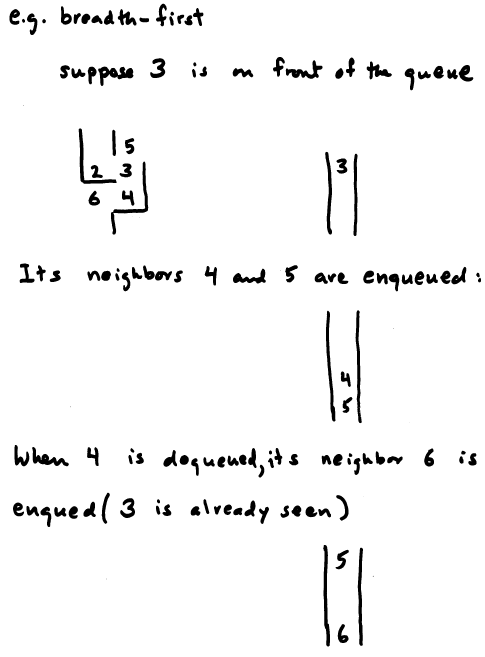 e.g. breadth-first
suppose 3 is on front of the queue
5
2 3
6 4
3
Its neighbors 4 and 5 are enqueued:
4
5
When 4 is dequeued, its neighbor 6 is
enqued (3 is already seen)
5
6